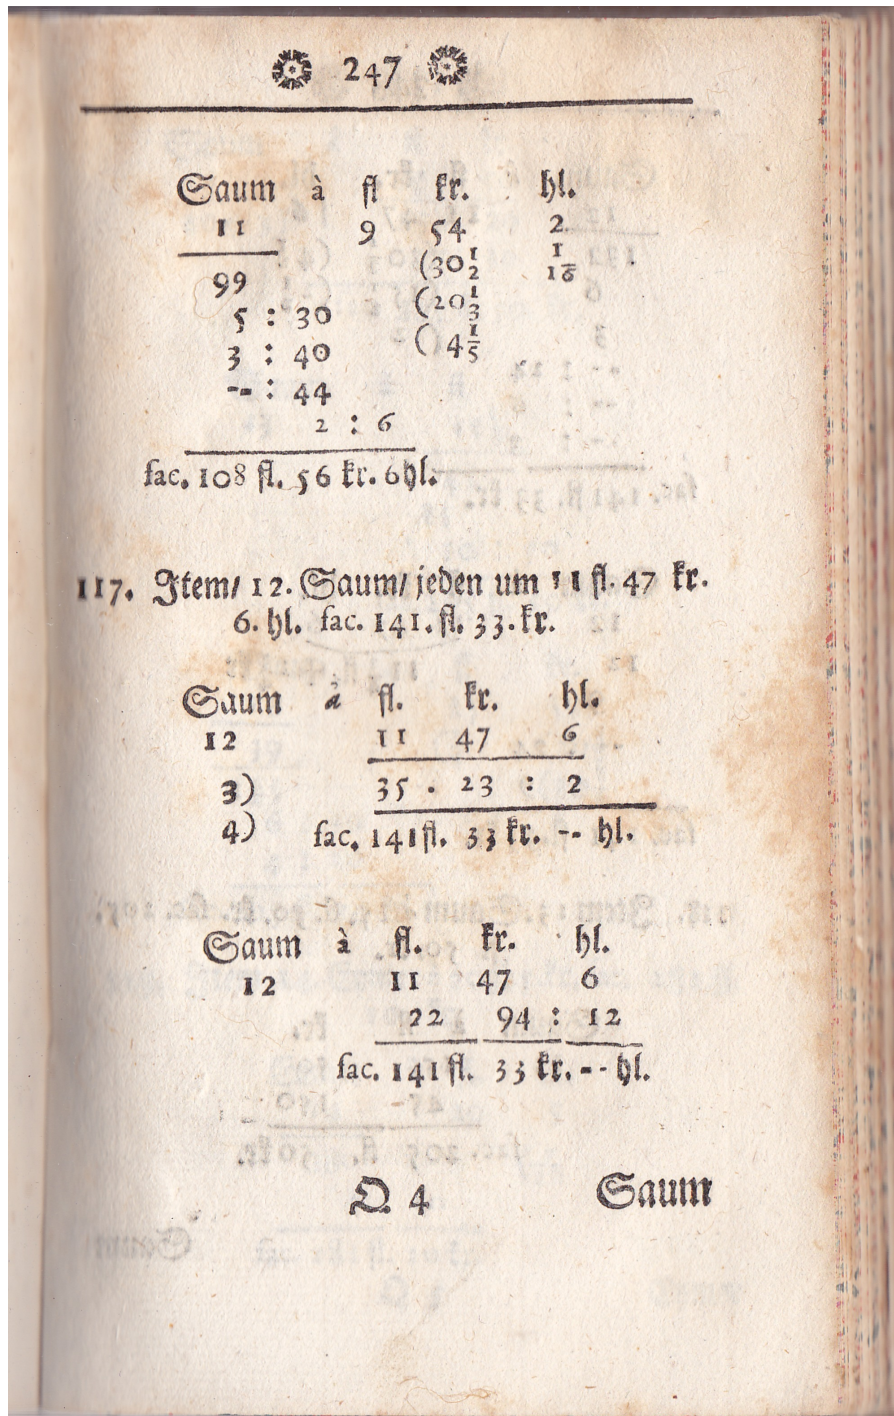 247
Saum à fl kr. hl.
11 9 54 2
99 (30 1/2 1/16
5 : 30 (20 1/3
3 : 40 ( 4 1/5
-- : 44
2 : 6
fac. 108 fl. 56 kr. 6 hl.
117. Item/ 12. Saum/ jeden um 11 fl. 47 kr.
6. hl. fac. 141. fl. 33. kr.
Saum à fl. kr. hl.
12 11 47 6
3) 35 . 23 : 2
4) fac. 141 fl. 33 kr. -- hl.
Saum à fl. kr. hl.
12 11 47 6
22 94 : 12
fac. 141 fl. 33 kr. -- hl.
Q 4 Saum